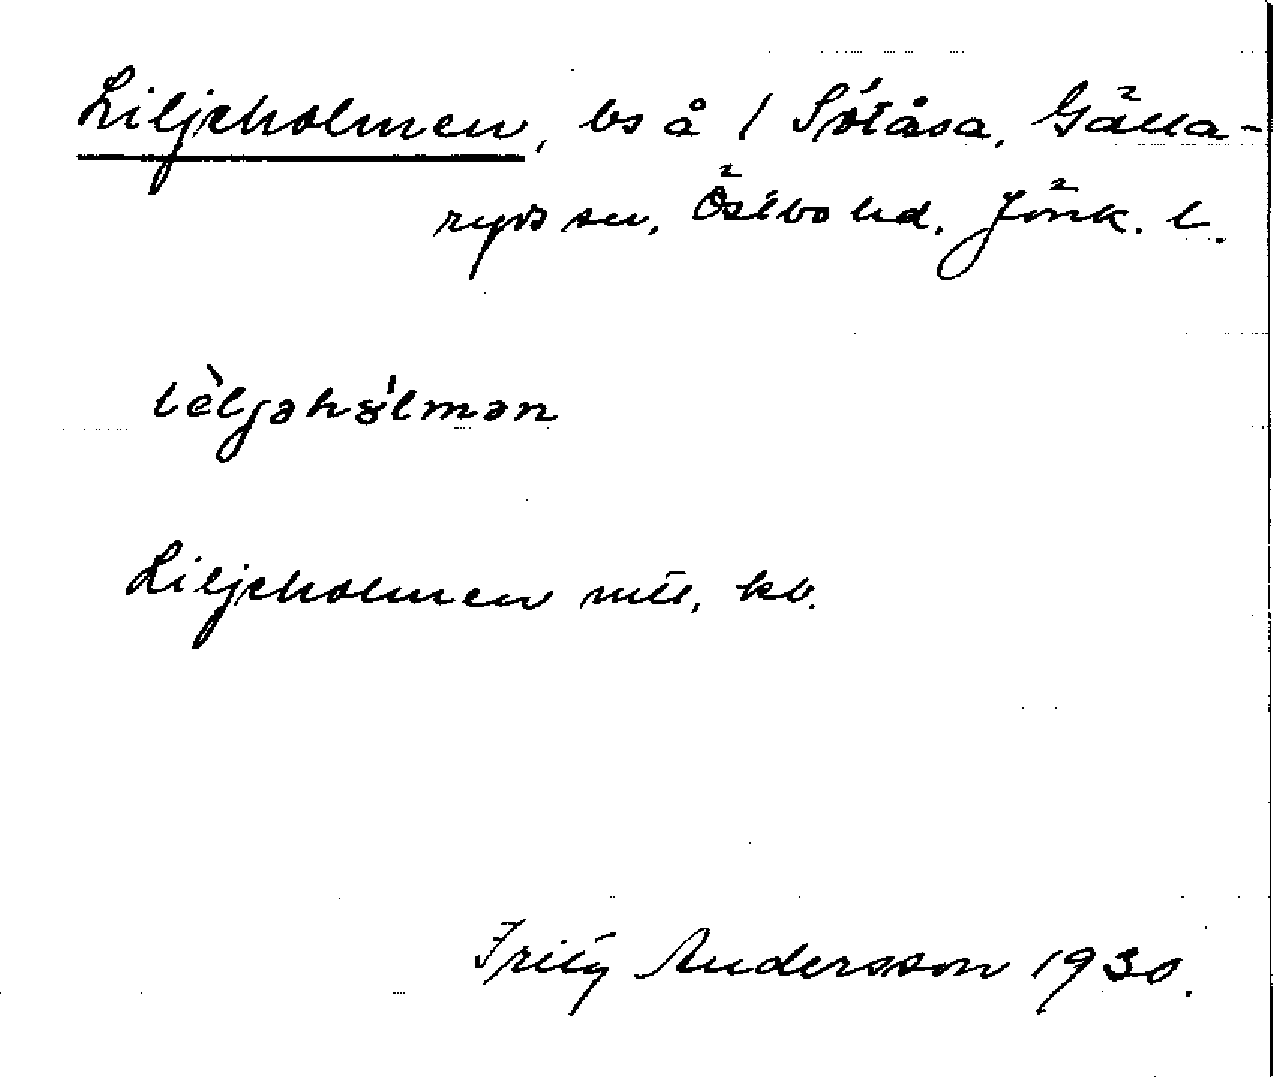 Liljeholmen, bs å 1 Sötåsa, Gälla-
ryds sn, Östbo hd. Jönk. l.
lèljəhə́lmən
Liljeholmen mtl, kb.
Fritz Andersson 1930.